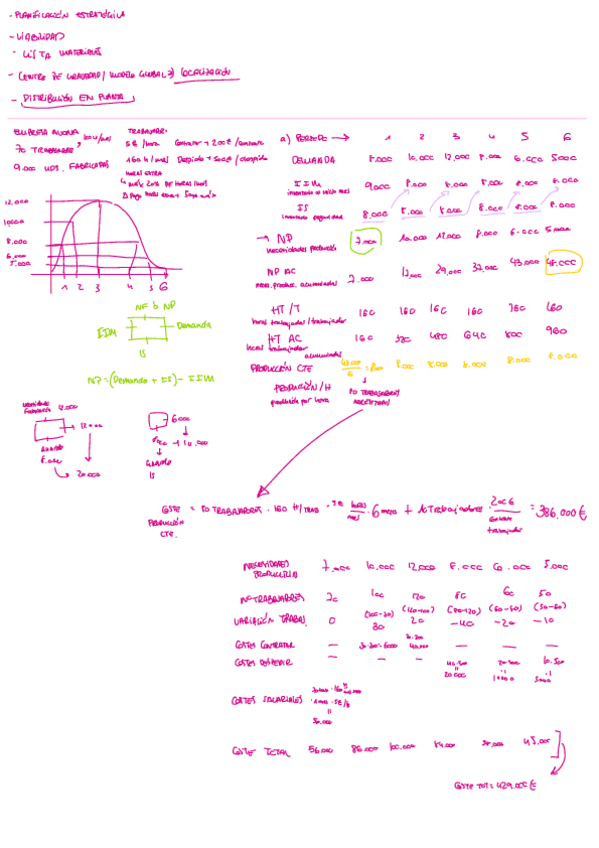 - PLANIFICACIÓN ESTRATÉGICA
- VIABILIDAD
- LISTA MATERIALES
- CENTRO DE GRAVEDAD / MODELO GLOBAL → LOCALIZACIÓN
- DISTRIBUCIÓN EN PLANTA
70 TRABAJADORES
9.000 UDS. FABRICADAS
TRABAJAR:
5€/hora Contratar → 200€/contrato
160 h/mes Despido → 500€/despido
HORAS EXTRA
a) PERIODO → 1 2 3 4 5 6
DEMANDA 8.000 10.000 12.000 8.000 6.000 5000
IIM 9000 8.000 8.000 8.000 8.000 8.000
IS 8.000 8.000 8.000 8.000 8.000 8.000
inventario seguridad
→ NP 7.000 10.000 12.000 8.000 6.000 5.000
necesidades producción
NP AC 7.000 17.000 29.000 37.000 43.000 48.000
HT/T 160 160 160 160 160 160
horas trabajadas/trabajador
HT AC 160 320 480 640 800 960
horas trabajador acumuladas
PRODUCCIÓN CTE 48.000/6 = 8.000 8.000 8.000 8.000 8.000 8.000
PRODUCCIÓN/H
producción por hora
80 TRABAJADORES NECESITAMOS
12.000
10000
8.000
6.000
5.000
1 2 3 4 5 6
NP
IIM
Demanda
IS
NP = (Demanda + IS) - IIM
12.000
8.000
→ 20.000
6000
→ 14.000
IS
COSTE PRODUCCIÓN CTE. = 80 TRABAJADORES · 160 H/TRAB · 5€ · 6 meses + 10 Trabajadores · 200€ = 386.000€
NECESIDADES PRODUCCIÓN 7.000 10.000 12.000 8.000 6.000 5.000
Nº TRABAJADORES 70 100 120 80 60 50
VARIACIÓN TRABAJ. 0 (100-70) 30 (120-100) 20 (80-120) -40 (60-80) -20 (50-60) -10
COSTES CONTRATAR — 30·200=6000 — — —
COSTES DESPEDIR — — — 40·500 = 20.000 20·500 10.000 10·500 5000
COSTES SALARIALES
56.000
COSTE TOTAL 56.000 86.000 100.000 84.000 58.000 45.000
COSTE TOT = 429.000€